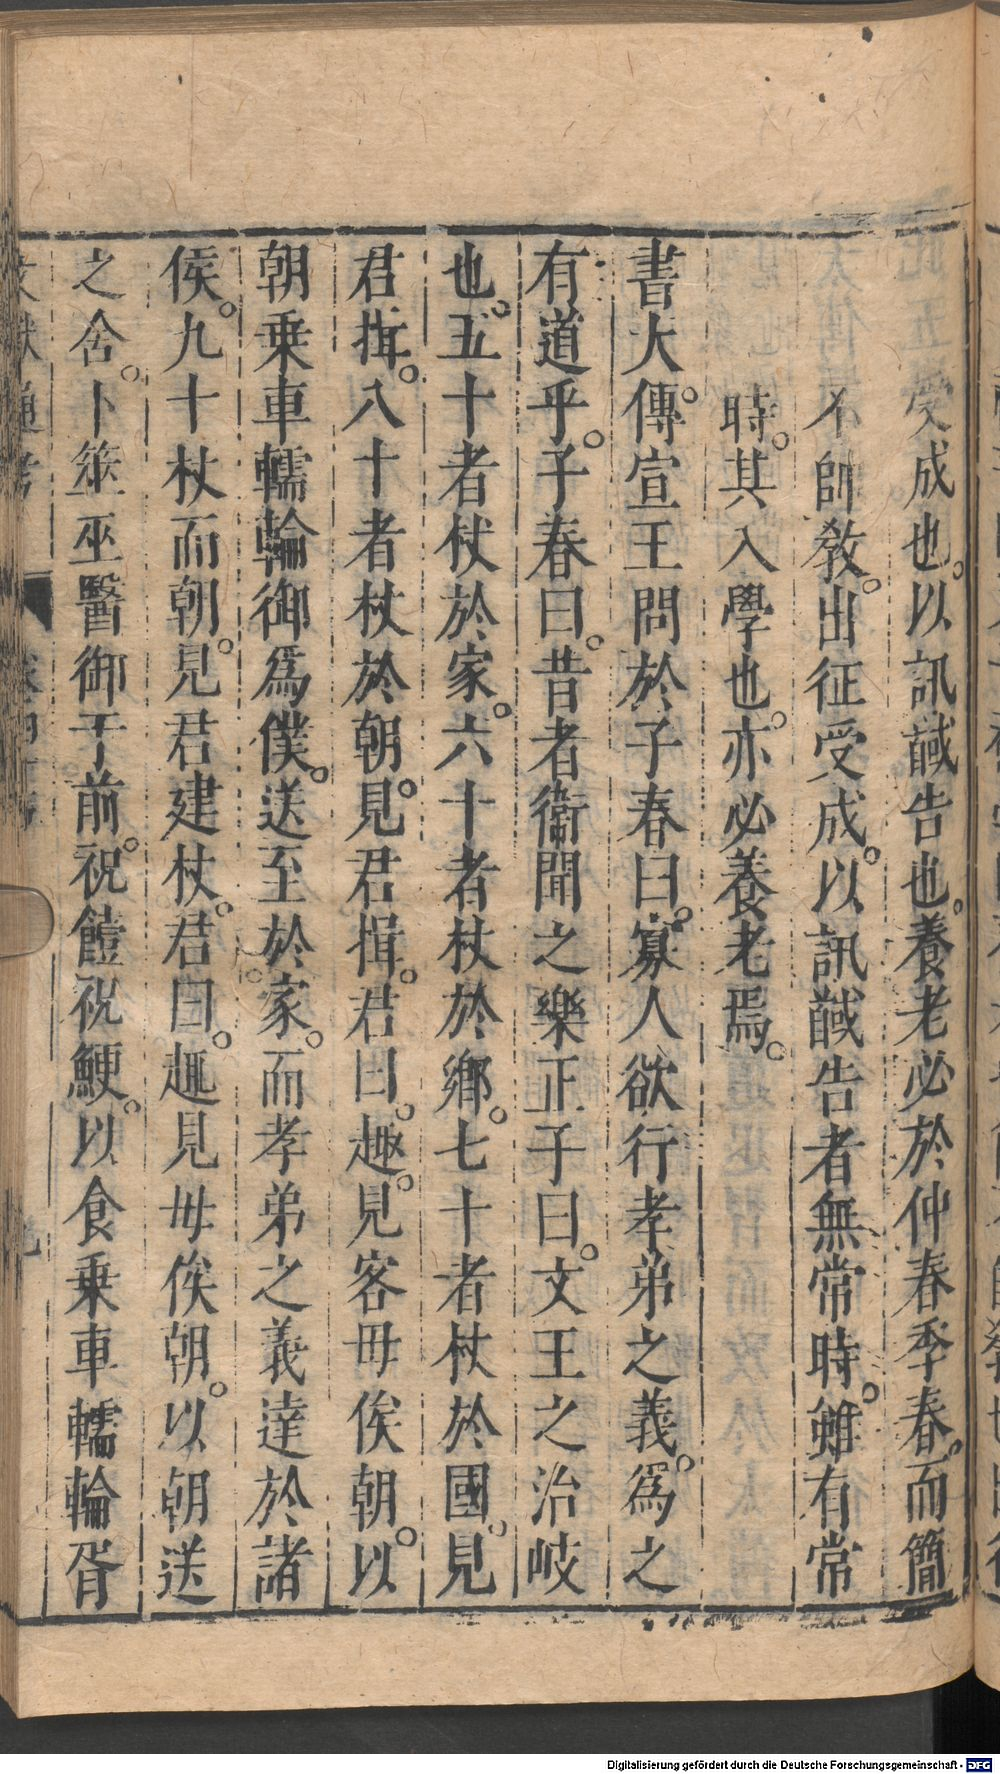 受成也以訊馘告也養老必於仲春季春而簡
不帥敎出征受成以訊馘告者無常時雖有常
時其入學也亦必養老焉
書大傳宣王問於子春曰寡人欲行孝弟之義爲之
有道乎子春曰昔者衞聞之樂正子曰文王之治岐
也五十者杖於家六十者杖於鄉七十者杖於國見
君揖八十者杖於朝見君揖君曰趣見客毋俟朝以
朝乗車轜輪御爲僕送至於家而孝弟之義達於諸
侯九十杖而朝見君建杖君曰趣見毋俟朝以朝送
之舍卜筮巫醫御于前祝饐祝鯁以食乗車轜輪胥
Digitalisierung gefördert durch die Deutsche Forschungsgemeinschaft - DFG